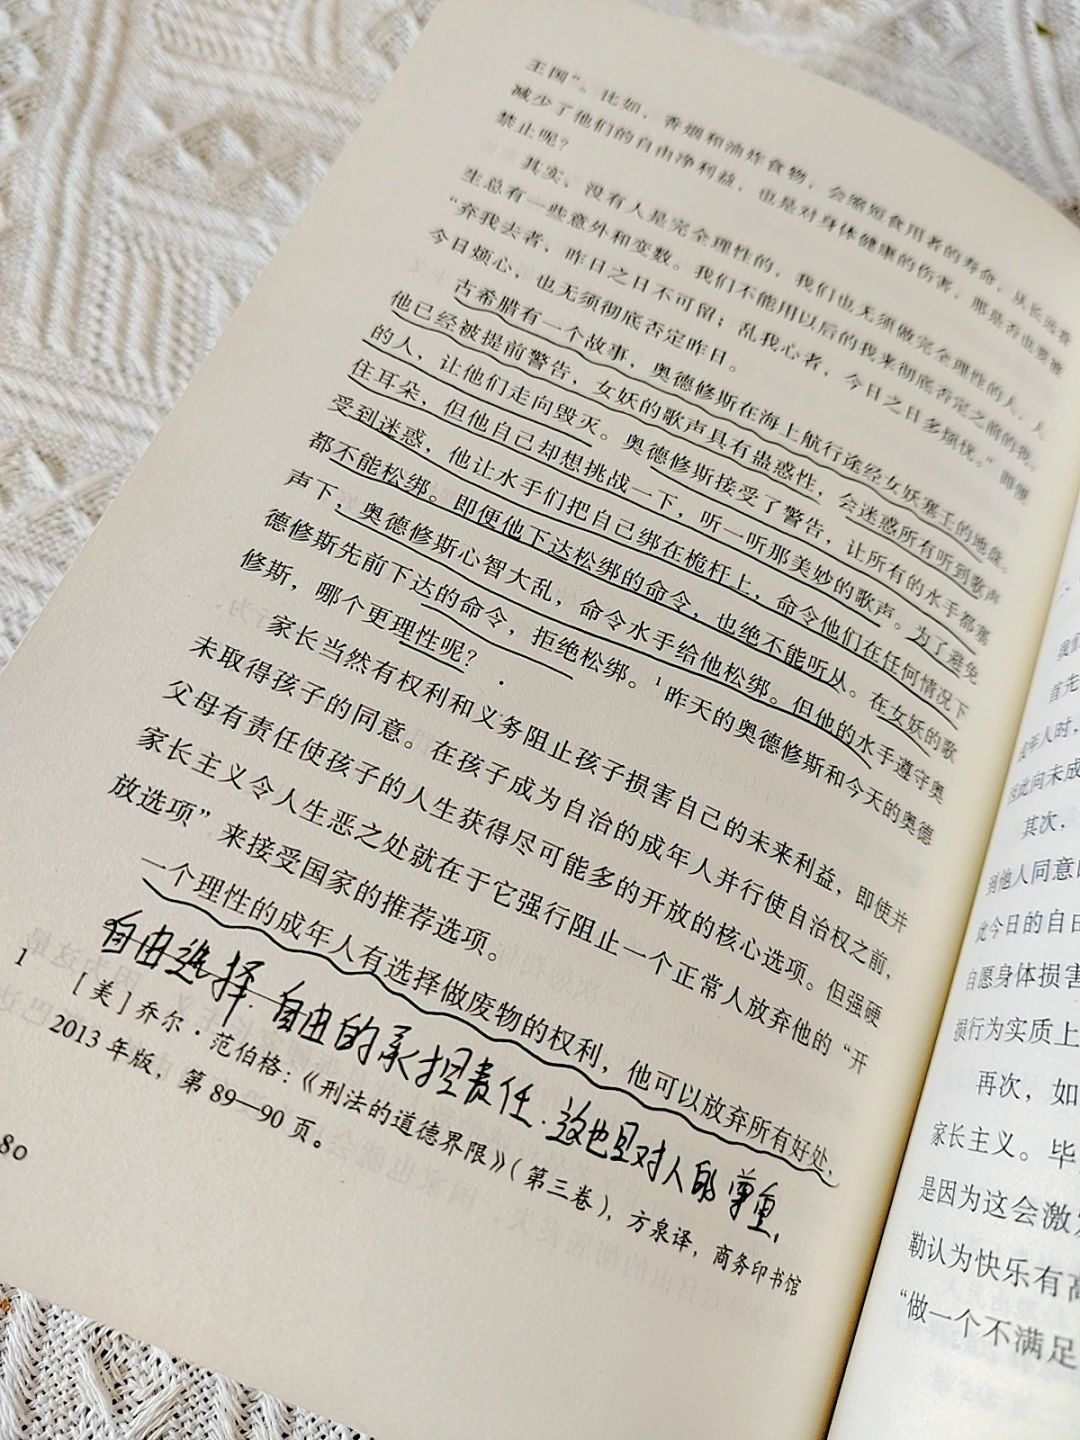 王国”。比如，香烟和油炸食物，会缩短食用者的寿命，从长远看
减少了他们的自由净利益，也是对身体健康的伤害，那是否也要被
禁止呢？
其实，没有人是完全理性的，我们也无须做完全理性的人，人
生总有一些意外和变数。我们不能用以后的我来彻底否定之前的我。
“弃我去者，昨日之日不可留；乱我心者，今日之日多烦忧。”即便
今日烦心，也无须彻底否定昨日。
古希腊有一个故事，奥德修斯在海上航行途经女妖塞壬的地盘。
他已经被提前警告，女妖的歌声具有蛊惑性，会迷惑所有听到歌声
的人，让他们走向毁灭。奥德修斯接受了警告，让所有的水手都塞
住耳朵，但他自己却想挑战一下，听一听那美妙的歌声。为了避免
受到迷惑，他让水手们把自己绑在桅杆上，命令他们在任何情况下
都不能松绑。即便他下达松绑的命令，也绝不能听从。在女妖的歌
声下，奥德修斯心智大乱，命令水手给他松绑。但他的水手遵守奥
德修斯先前下达的命令，拒绝松绑。1昨天的奥德修斯和今天的奥德
修斯，哪个更理性呢？
家长当然有权利和义务阻止孩子损害自己的未来利益，即使并
未取得孩子的同意。在孩子成为自治的成年人并行使自治权之前，
父母有责任使孩子的人生获得尽可能多的开放的核心选项。但强硬
家长主义令人生恶之处就在于它强行阻止一个正常人放弃他的“开
放选项”来接受国家的推荐选项。
一个理性的成年人有选择做废物的权利，他可以放弃所有好处，
自由选择.自由的承担责任.这也是对人的尊重，
1 ［美］乔尔·范伯格：《刑法的道德界限》（第三卷），方泉译，商务印书馆
2013年版，第89—90页。
80
我们
首先
成年人时，
因此向未成
其次，
到他人同意的
此今日的自
自愿身体损害
损行为实质上
再次，如
家长主义。毕
是因为这会激
勒认为快乐有高
“做一个不满足